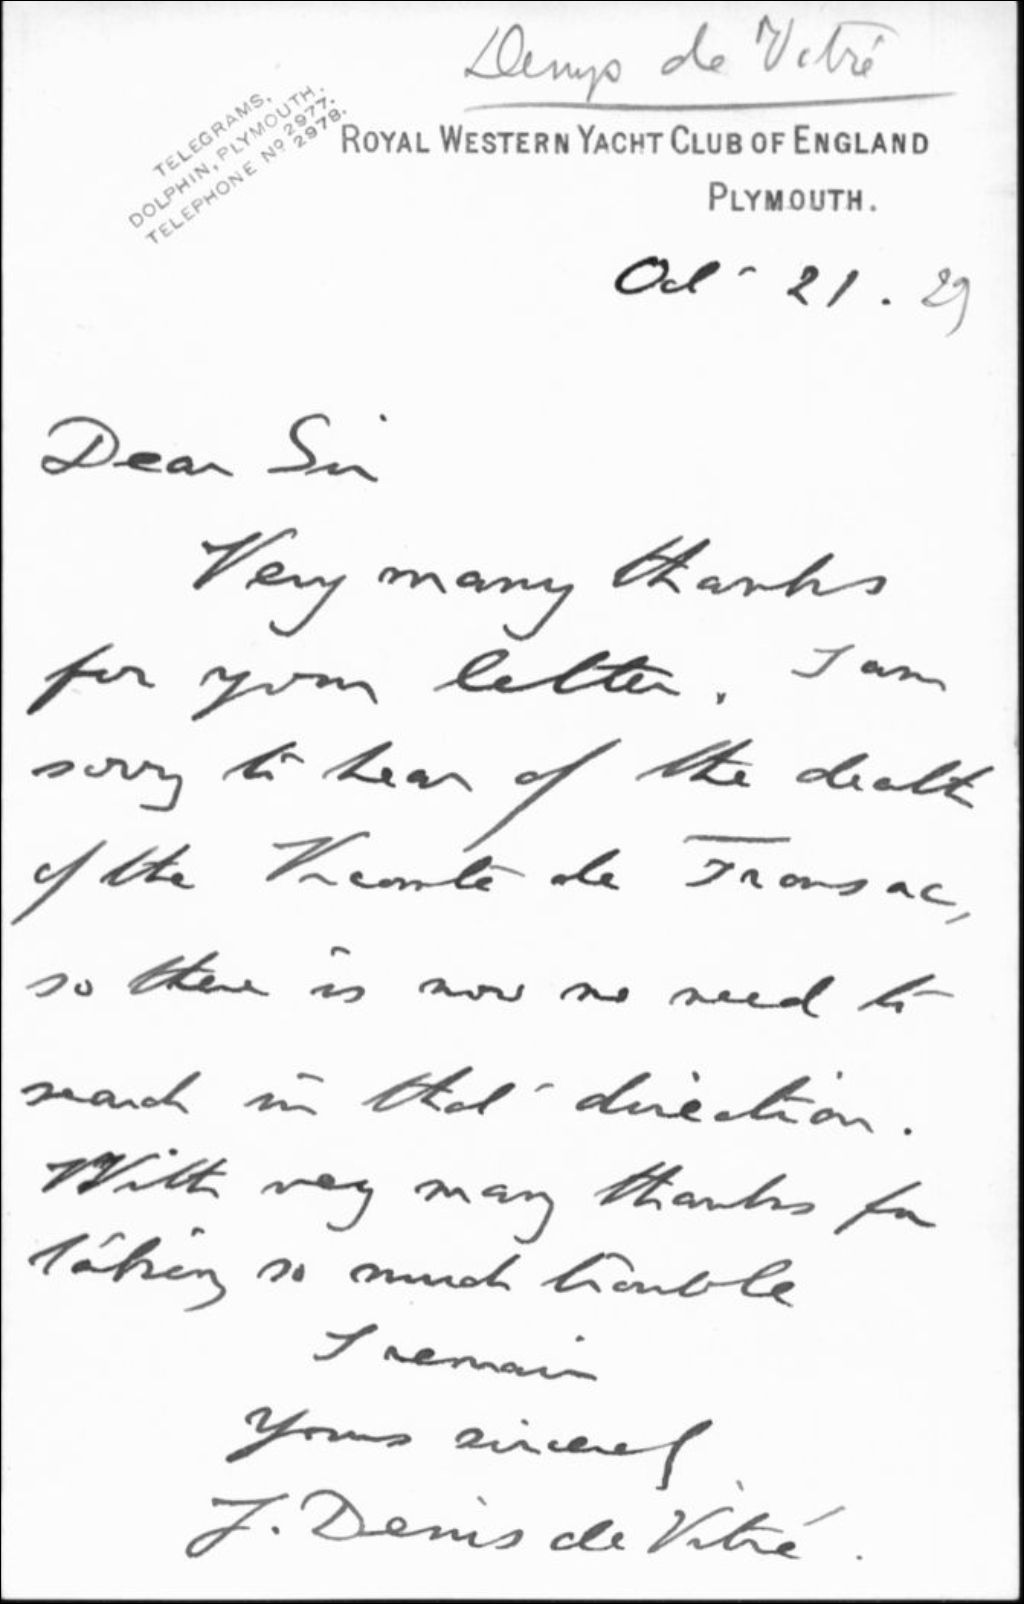 Denys de Vitré
TELEGRAMS,
DOLPHIN, PLYMOUTH.
TELEPHONE No 2977.
2978.
ROYAL WESTERN YACHT CLUB OF ENGLAND
PLYMOUTH.
Oct 21. 29
Dear Sir
Very many thanks
for your letter. I am
sorry to hear of the death
of the Vicomte de Transac,
so there is now no need to
search in that direction.
With very many thanks for
taking so much trouble
I remain
Yours sincerely
J. Denis de Vitré.